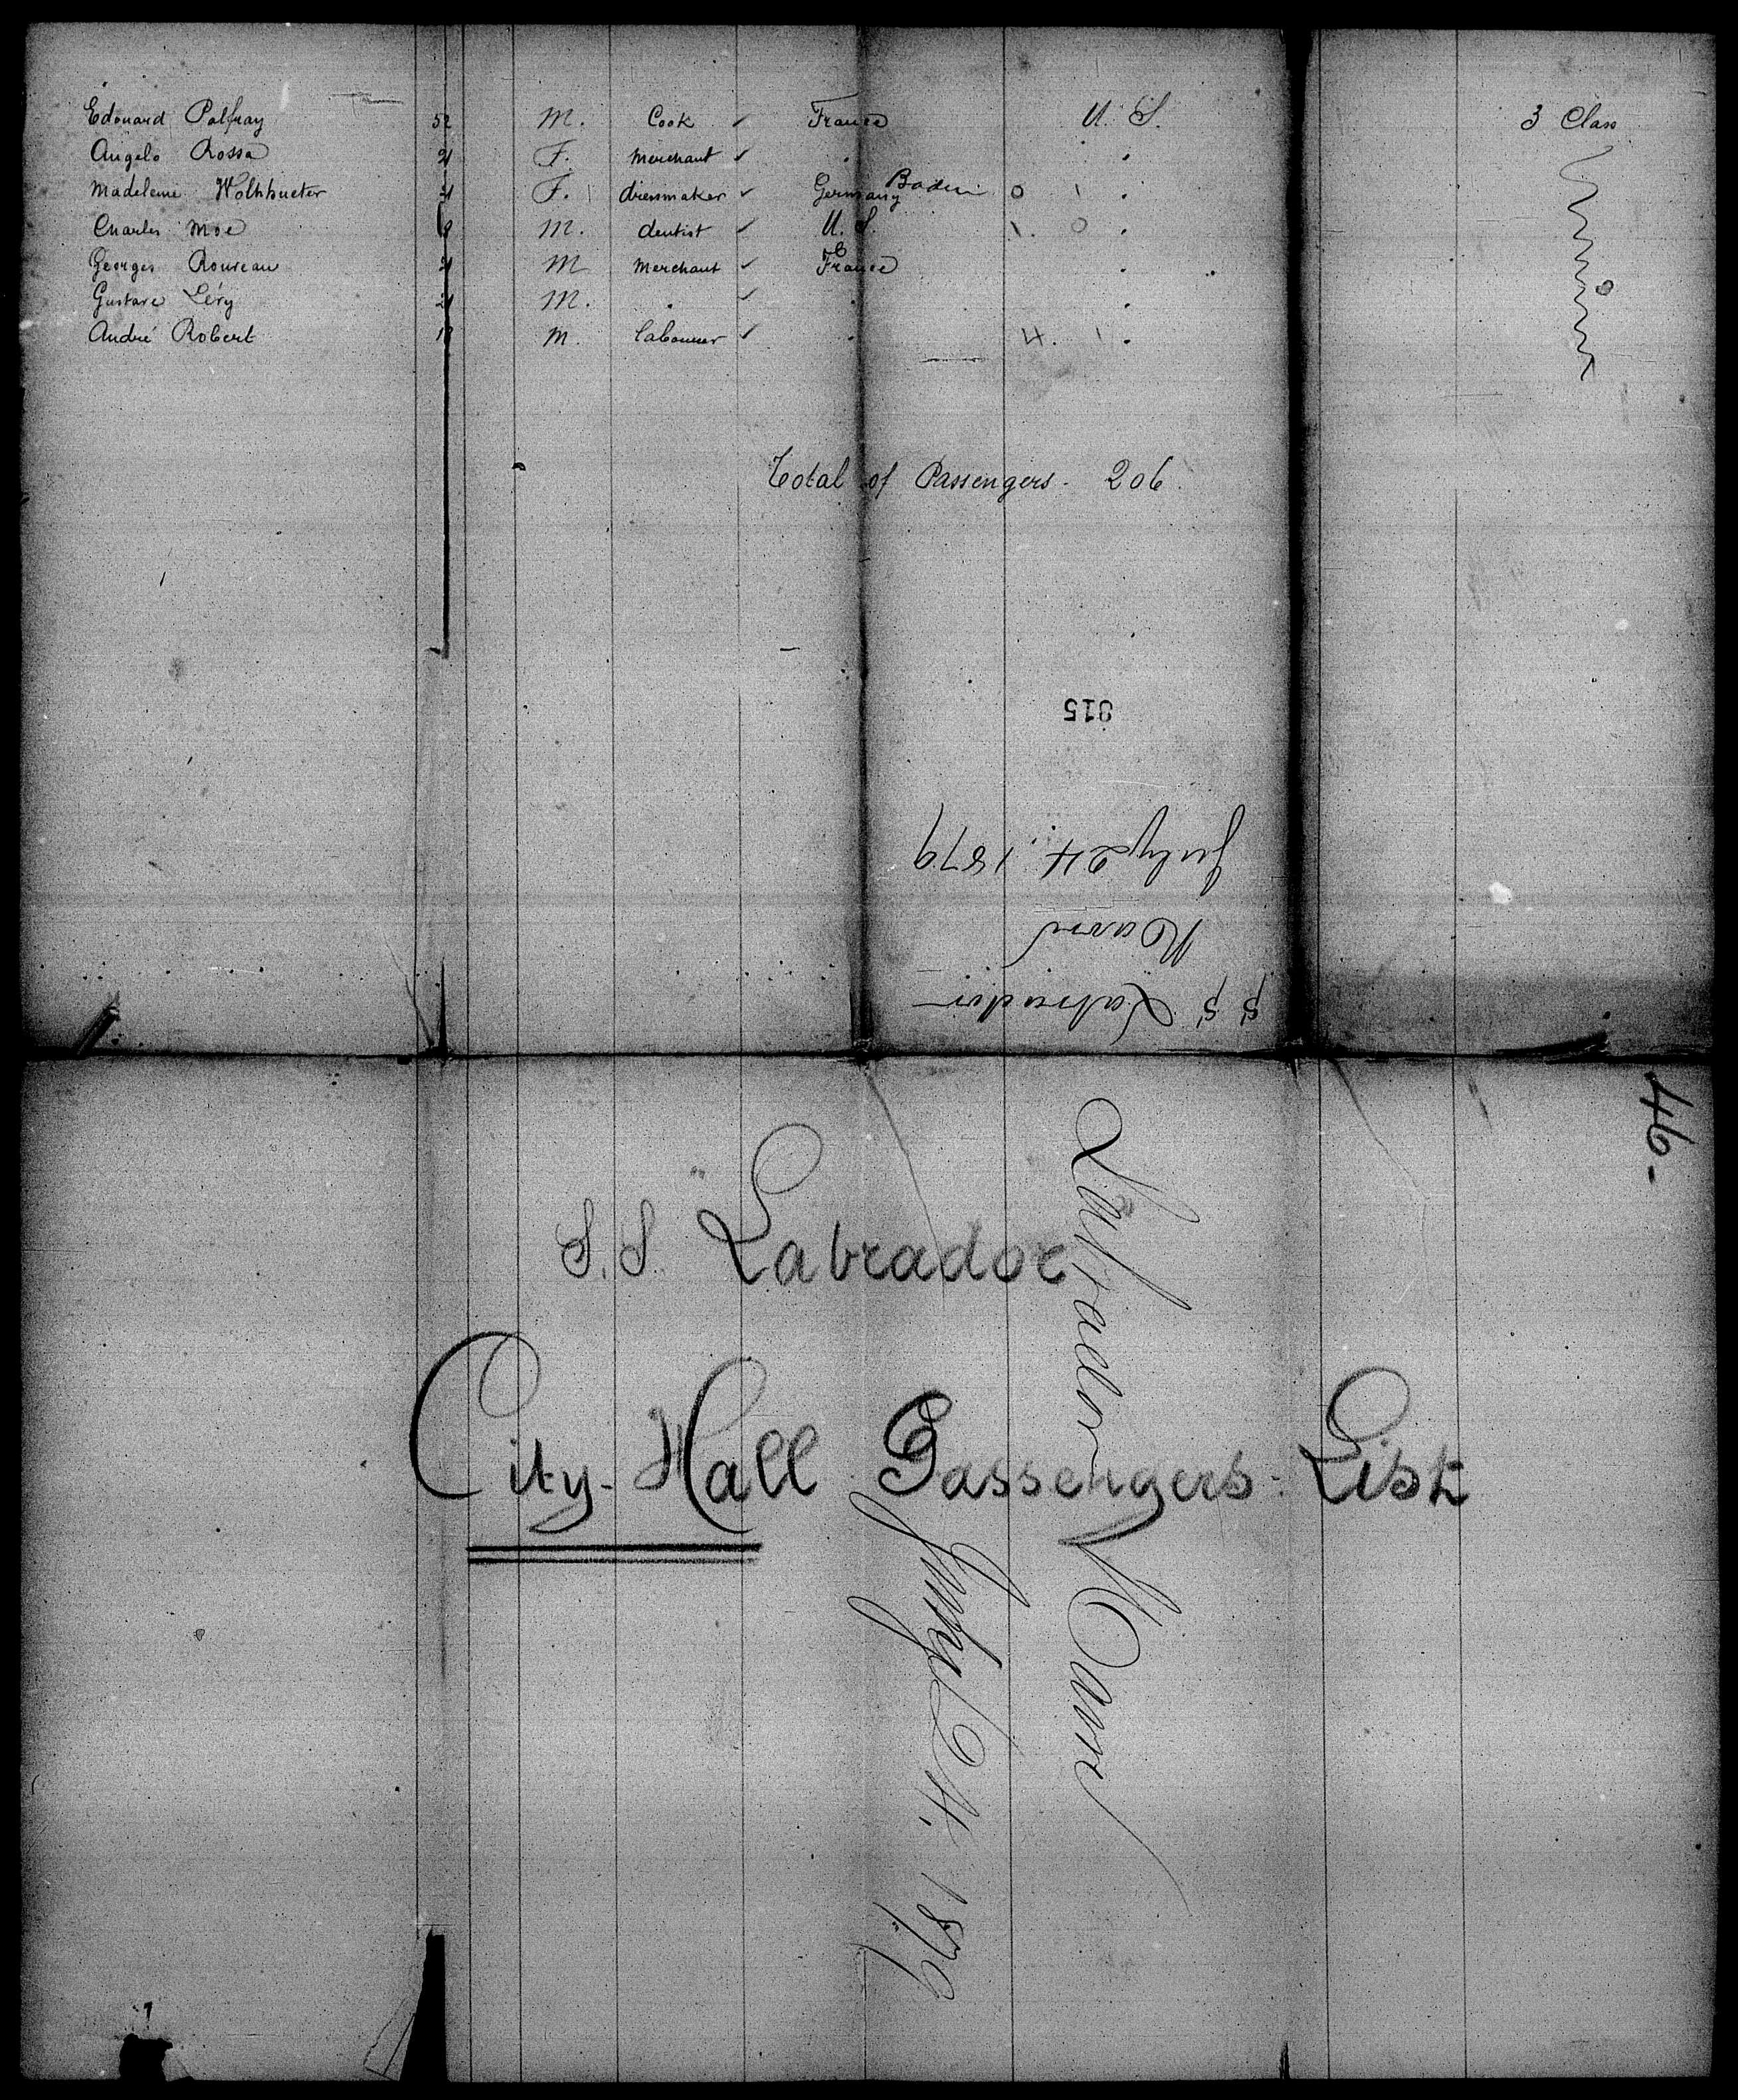 Edouard Palfray 52 M. Cook ✓ France U. S. 3 Class
Angelo Rossa 21 F. Merchant ✓ . .
Madeleine F. dressmaker ✓ Germany Baden 0 1 .
Charles Moe M. dentist ✓ U. S. 1. 0 .
Georges Rouveau 21 M Merchant ✓ France .
Gustave Léry 21 M. . ✓ . .
André Robert M. labourer ✓ . 4. 1 .
Total of Passengers - 206.
915
July 24, 1879
Havre
SS Labrador
46-
S.S. Labrador
City-Hall Passengers-List
Labrador Havre
July 24, 1879